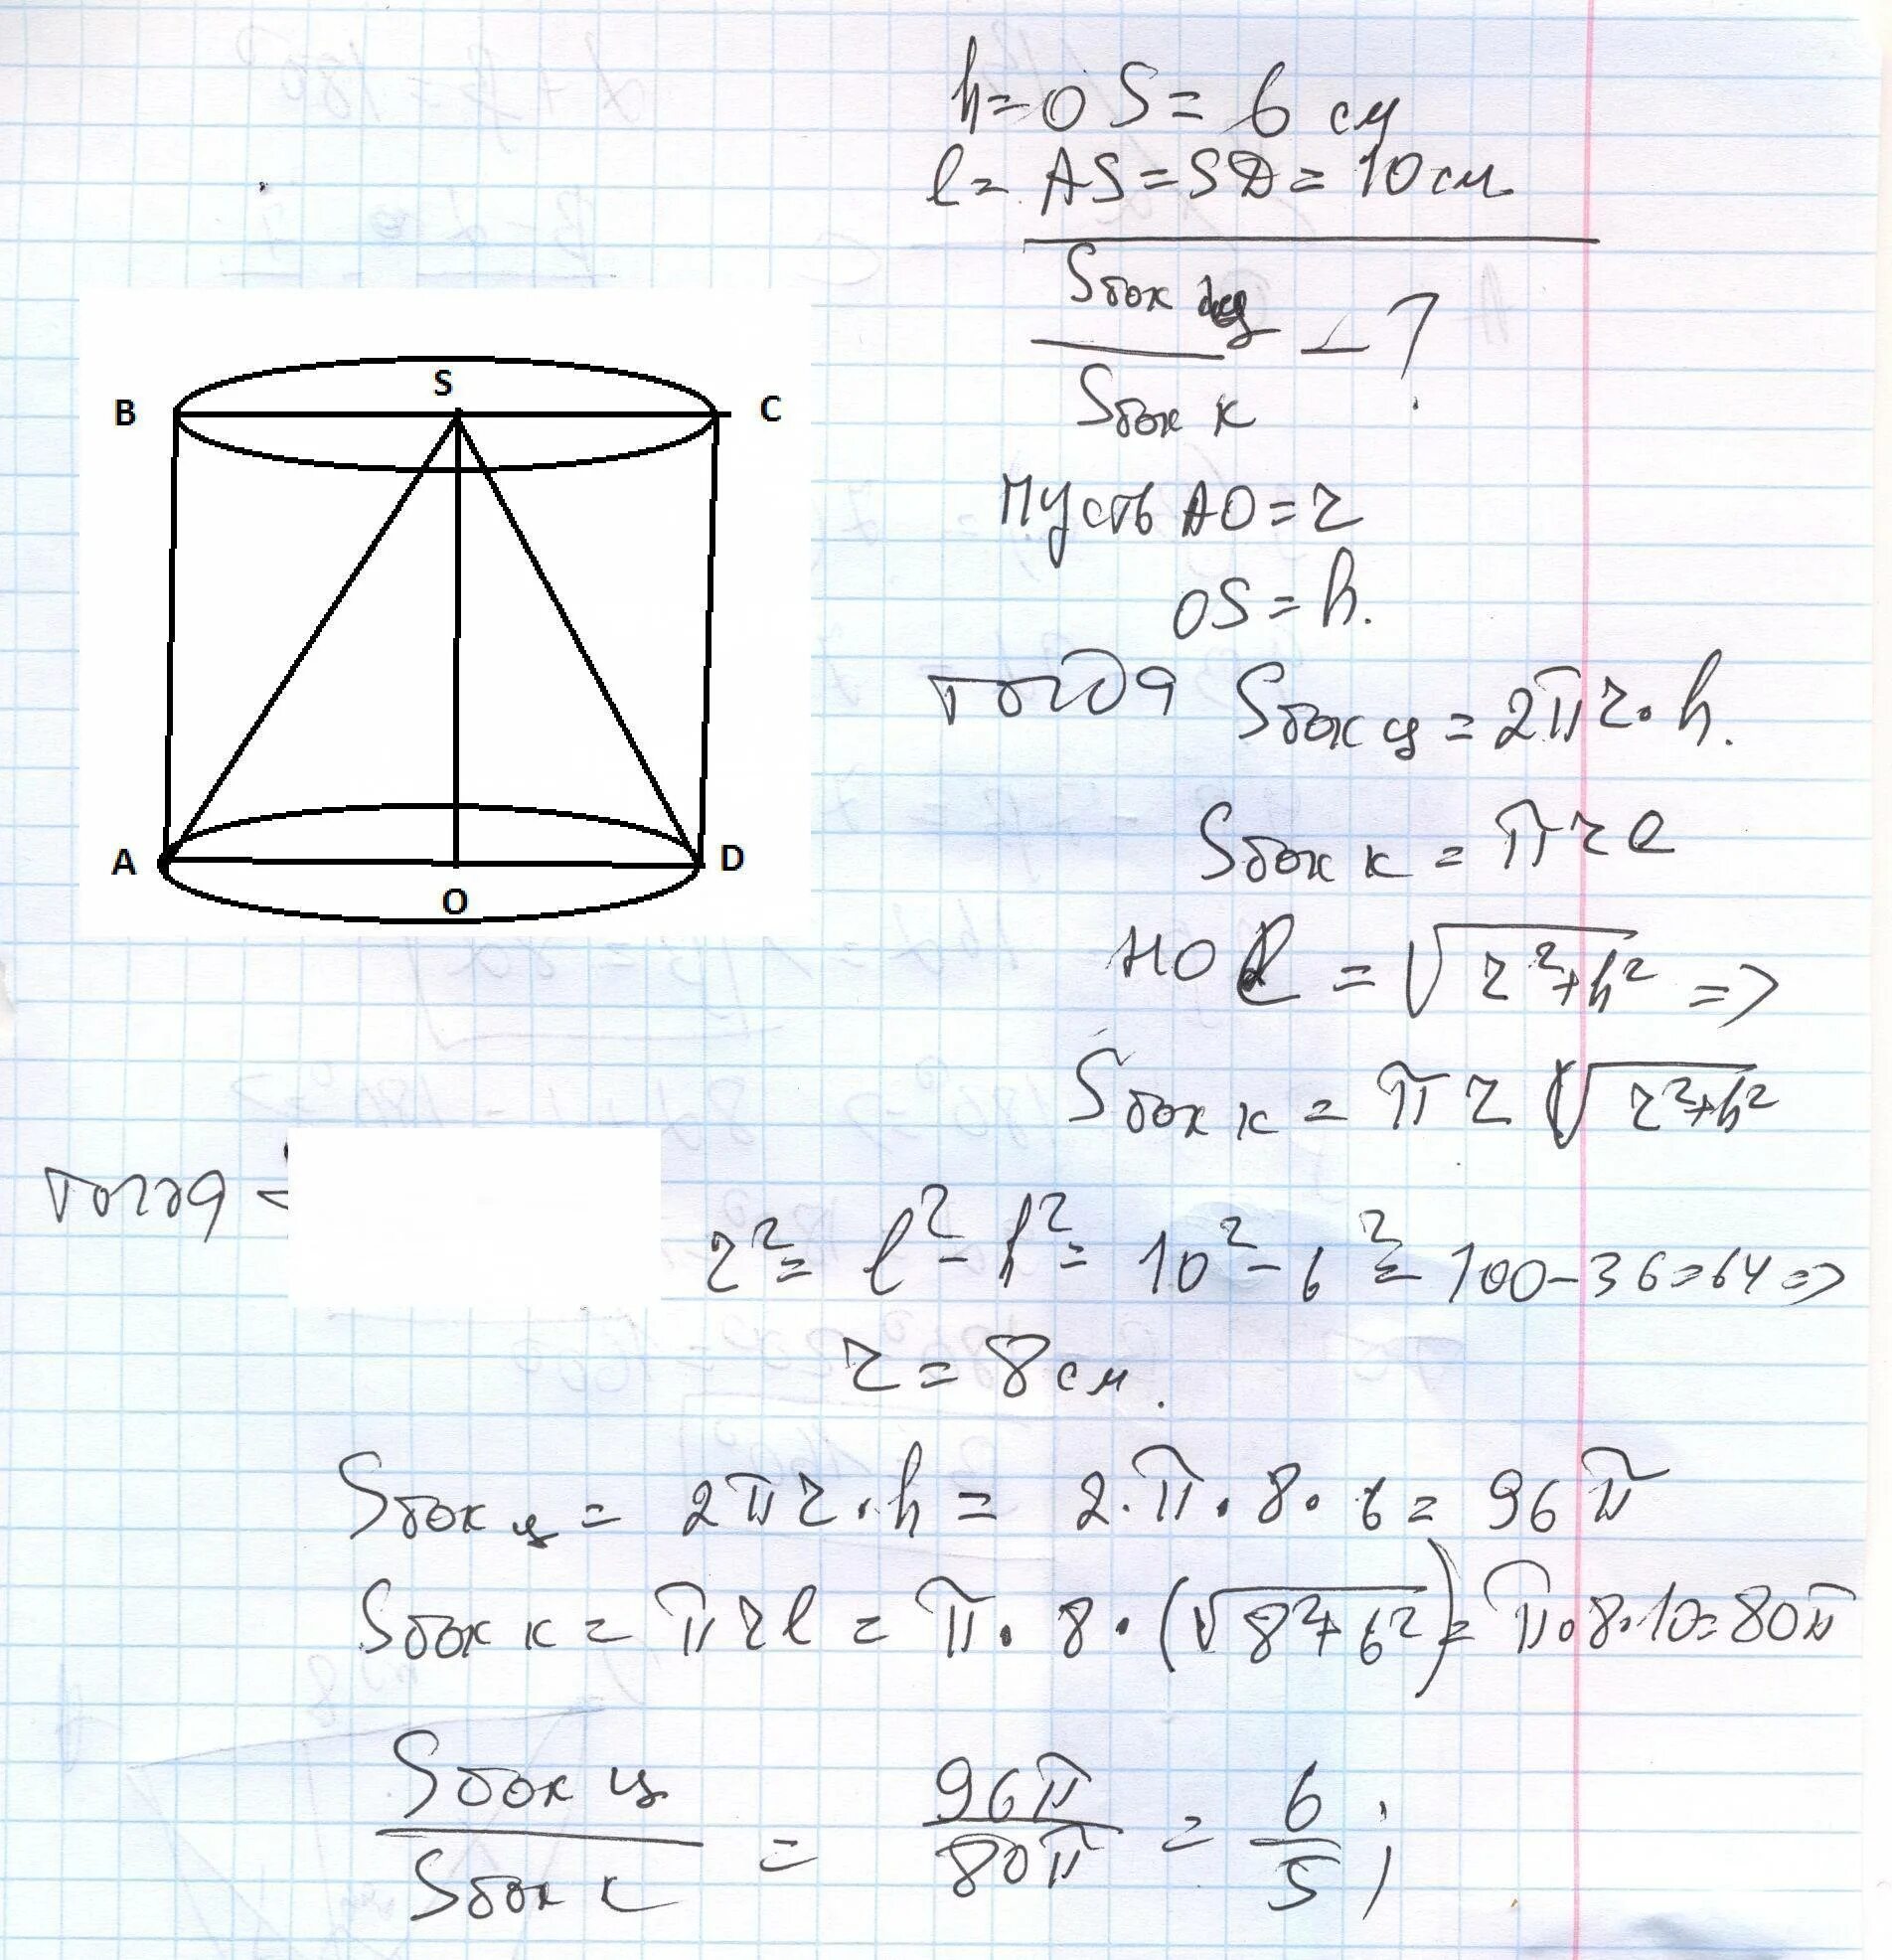 h = OS = 6 см
l = AS = SD = 10 см
Sбок ц
— ?
Sбок к
B S C
A O D
Пусть AO = r
OS = h.
Тогда Sбок ц = 2πr · h.
Sбок к = πrl
но l = √r²+h² =>
Sбок к = πr √r²+h²
Тогда
r² = l² - h² = 10² - 6² = 100 - 36 = 64 =>
r = 8 см.
Sбок ц = 2πr · h = 2 · π · 8 · 6 = 96π
Sбок к = πrl = π · 8 · (√8²+6²) = π · 8 · 10 = 80π
Sбок ц / Sбок к = 96π / 80π = 6 / 5 ;